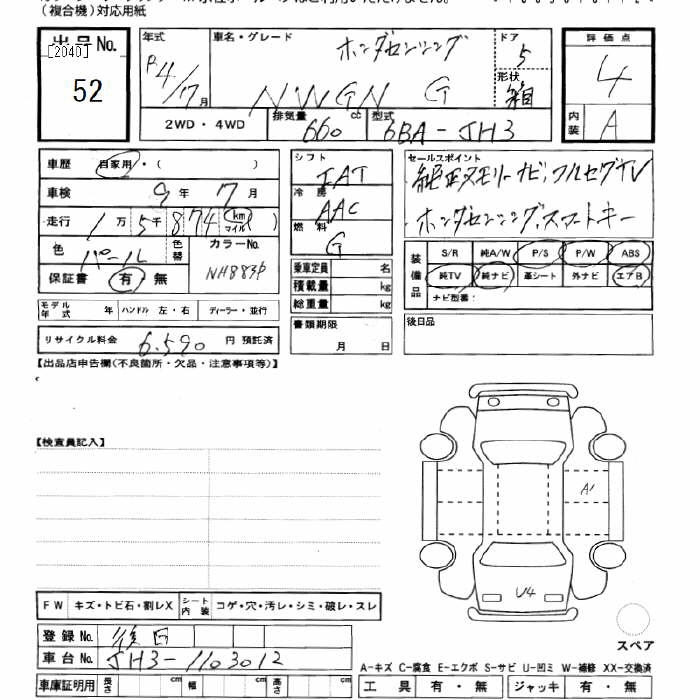 (複合機)対応用紙
出品No. [2040] 52
年式 R4/17月
車名・グレード ホンダセンシング NWGN G
ドア 5
形状 箱
評価点 4
内装 A
2WD・4WD 排気量 660 cc 型式 6BA-JH3
車歴 自家用・( )
車検 9年 7月
走行 1万5千874 (km マイル)
色 パール 色替 カラーNo. NH883P
保証書 有・無
モデル年式 年 ハンドル 左・右 ディーラー・並行
リサイクル料金 6,590 円 預託済
シフト IAT
冷房 AAC
燃料 G
乗車定員 名
積載量 kg
総重量 kg
書類期限 月 日
セールスポイント
純正メモリーナビ、フルセグTV
ホンダセンシング、スマートキー
装備品 S/R 純A/W P/S P/W ABS
純TV 純ナビ 革シート 外ナビ エアB
ナビ型番:
後日品
【出品店申告欄(不良箇所・欠品・注意事項等)】
【検査員記入】
A1
U4
FW キズ・トビ石・割レX シート内装 コゲ・穴・汚レ・シミ・破レ・スレ
登録No. 後日
車台No. JH3-1103012
車庫証明用 長さ cm 幅 cm 高さ cm
スペア
A-キズ C-腐食 E-エクボ S-サビ U-凹ミ W-補修 XX-交換済
工具 有・無 ジャッキ 有・無